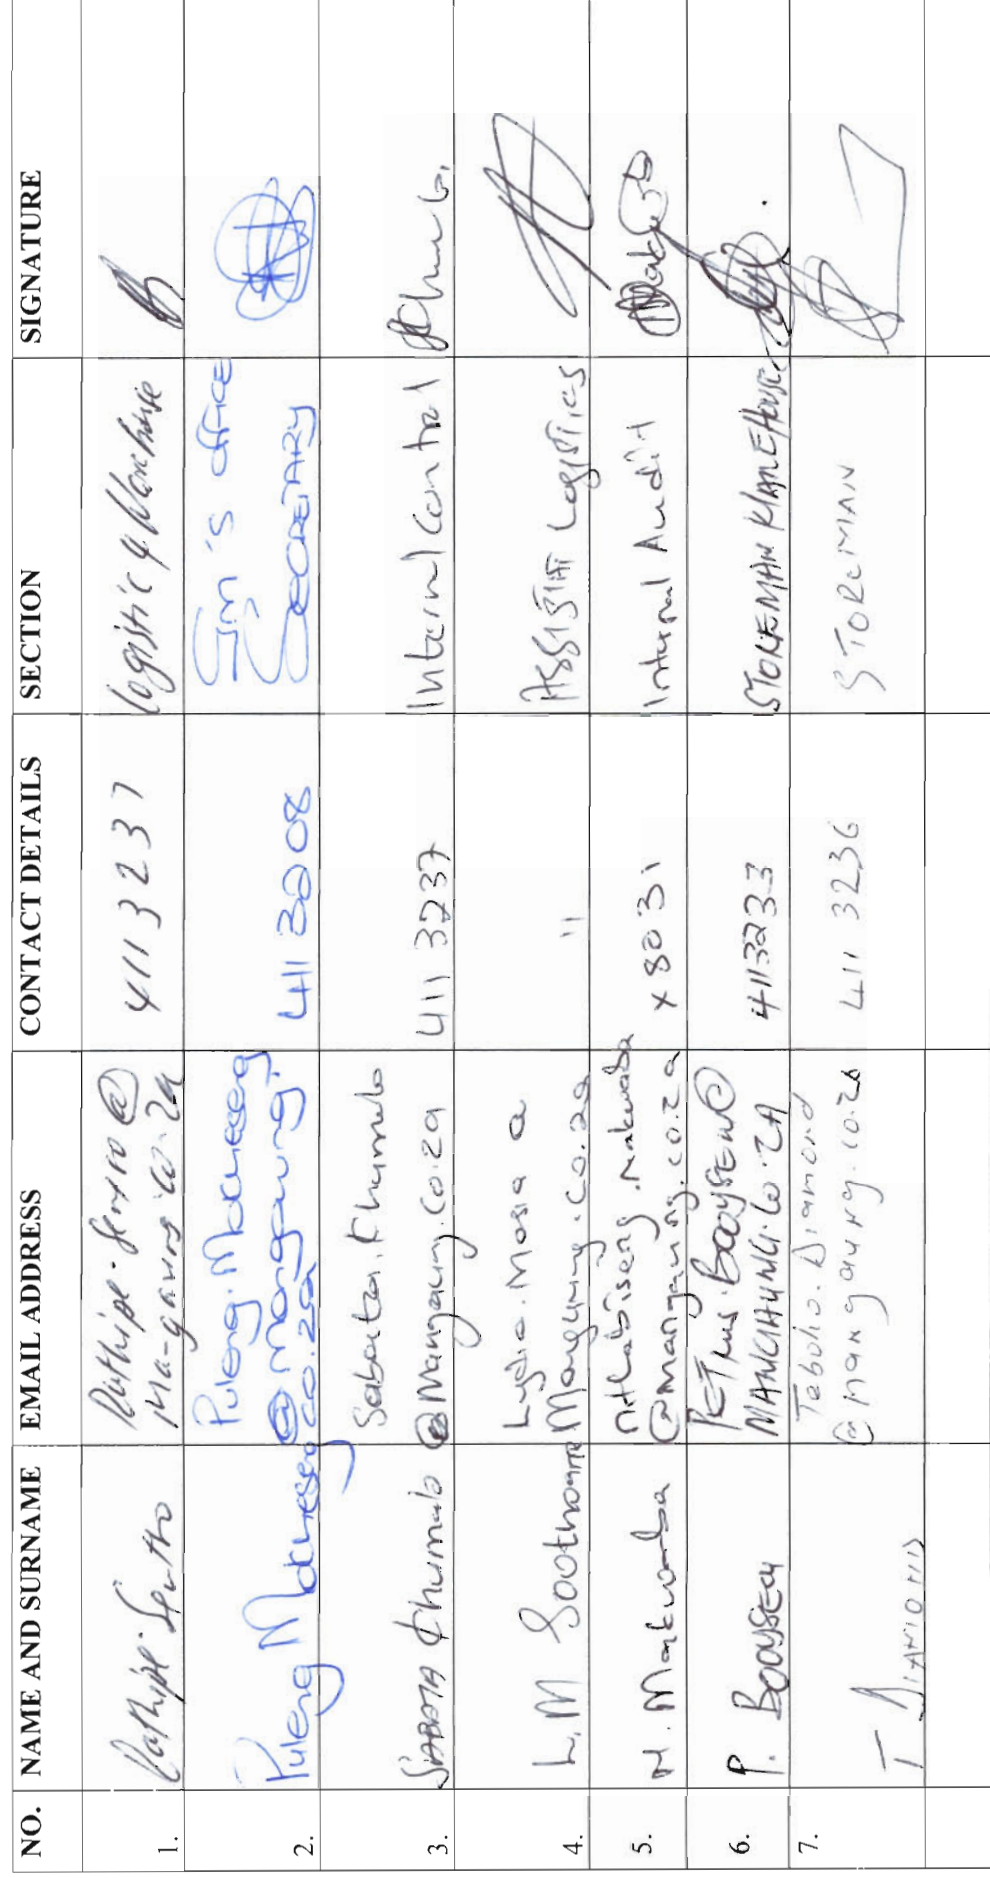 NO. NAME AND SURNAME EMAIL ADDRESS CONTACT DETAILS SECTION SIGNATURE
1. 411 3237
2. Puleng Mokheseng Puleng.Mokheseng
@Mangaung.
co.za 411 3208 GM's office
SECRETARY
3. SABATA Khumalo Sabata.Khumalo
@Mangaung.co.za 411 3237 Internal Control
4. L.M Lydia.Mosia @
Mangaung.co.za 11 Logistics
5. N. Makwaba Nthabiseng.Makwaba
@mangaung.co.za x8031 Internal Audit
6. P. BOOYSEN PETRUS.BOOYSEN@
MANGAUNG.CO.ZA 4113233 STOREMAN WAREHOUSE
7. T DIAMOND Diamond
@mangaung.co.za 411 3236 STOREMAN